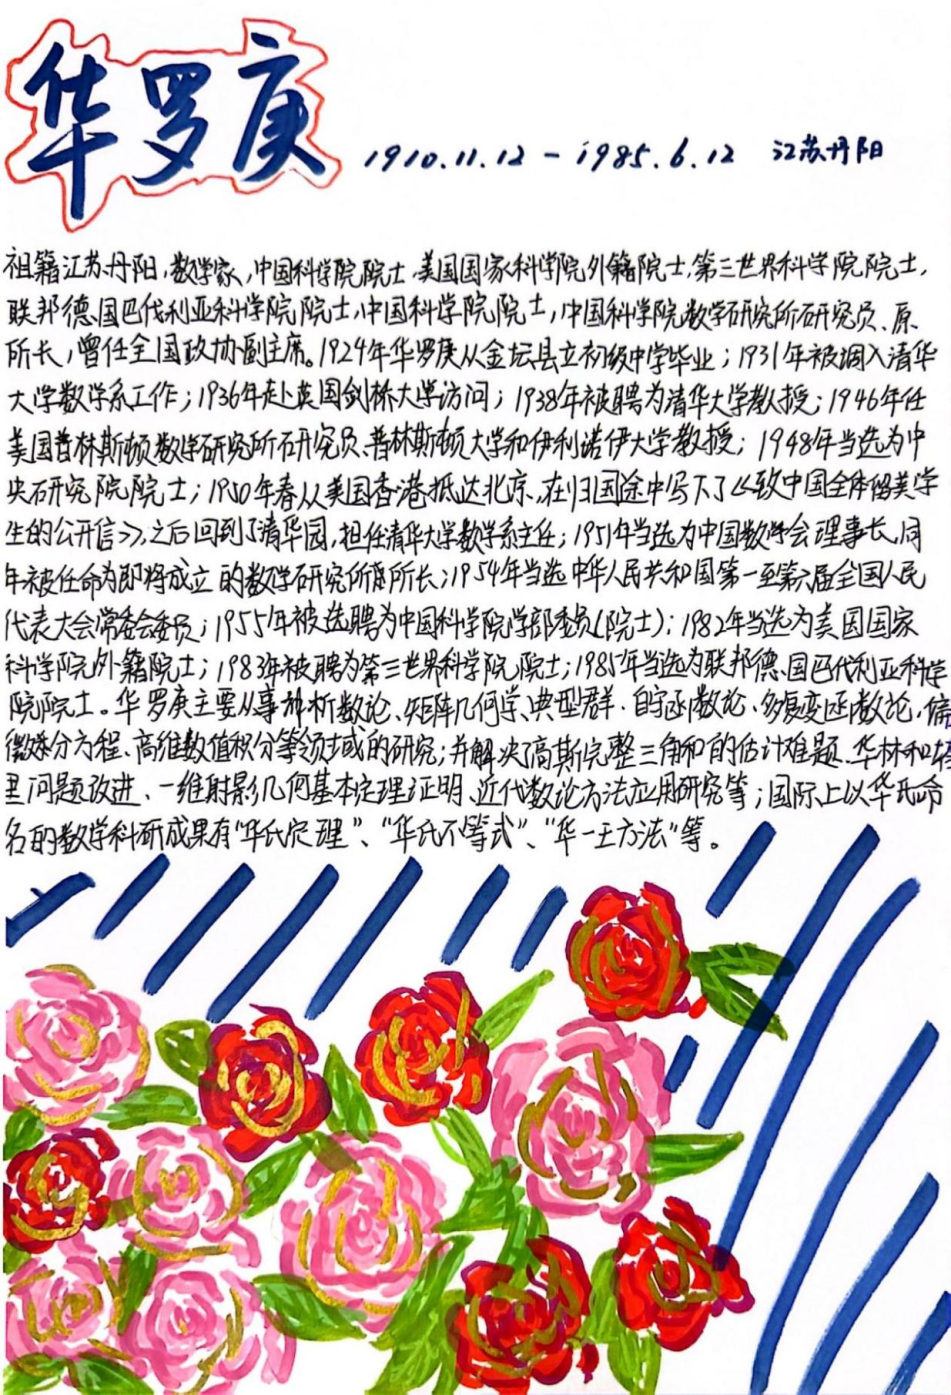 华罗庚
1910.11.12-1985.6.12 江苏丹阳
祖籍江苏丹阳,数学家,中国科学院院士,美国国家科学院外籍院士,第三世界科学院院士,
联邦德国巴伐利亚科学院院士,中国科学院院士,中国科学院数学研究所研究员、原
所长,曾任全国政协副主席。1924年华罗庚从金坛县立初级中学毕业;1931年被调入清华
大学数学系工作;1936年赴英国剑桥大学访问;1938年被聘为清华大学教授;1946年任
美国普林斯顿数学研究所研究员、普林斯顿大学和伊利诺伊大学教授;1948年当选为中
央研究院院士;1950年春从美国香港抵达北京,在归国途中写下了《致中国全体留美学
生的公开信》,之后回到了清华园,担任清华大学数学系主任;1951年当选为中国数学会理事长,同
年被任命为即将成立的数学研究所所长;1954年当选中华人民共和国第一至第六届全国人民
代表大会常委会委员;1955年被选聘为中国科学院学部委员(院士);1982年当选为美国国家
科学院外籍院士;1983年被聘为第三世界科学院院士;1985年当选为联邦德国巴伐利亚科学
院院士。华罗庚主要从事解析数论、矩阵几何学、典型群、自守函数论、多复变函数论、偏
微分方程、高维数值积分等领域的研究;并解决高斯完整三角和的估计难题、华林和塔
里问题改进、一维射影几何基本定理证明、近代数论方法应用研究等;国际上以华氏命
名的数学科研成果有“华氏定理”、“华氏不等式”、“华—王方法”等。